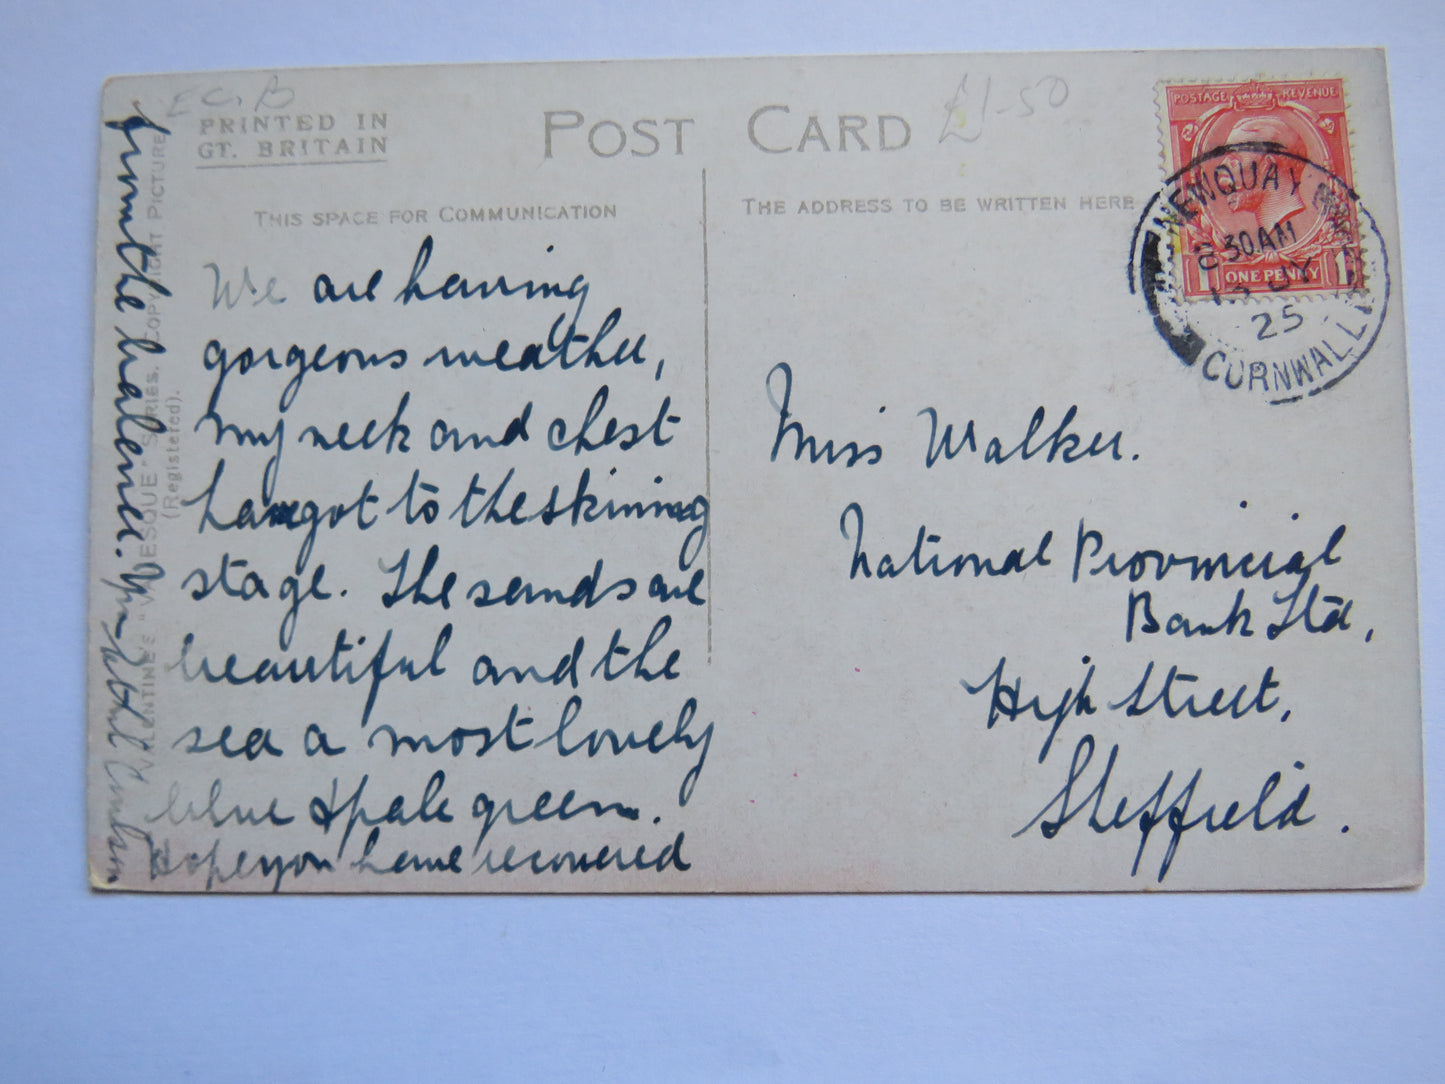 E C. B
PRINTED IN
GT. BRITAIN
POST CARD
£1-50
THIS SPACE FOR COMMUNICATION
THE ADDRESS TO BE WRITTEN HERE
POSTAGE REVENUE
ONE PENNY
NEWQUAY
8 30AM
13 JY
25
CORNWALL
We are having
gorgeous weather,
my neck and chest
have got to the skinning
stage. The sands are
beautiful and the
sea a most lovely
blue & pale green.
Hope you have recovered
from the balance.
Miss Walker.
National Provincial
Bank Ltd,
High Street,
Sheffield.
VALENTINE'S "VINESQUE" SERIES. COPYRIGHT PICTURE
(Registered).